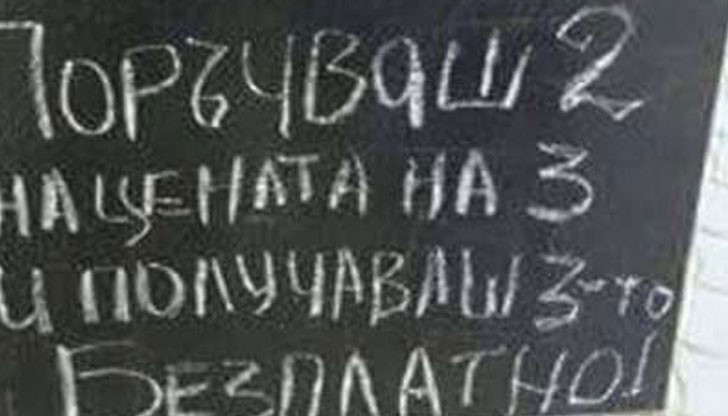 ПОРЪЧВАШ 2
НА ЦЕНАТА НА 3
И ПОЛУЧАВАШ 3-ТО
БЕЗПЛАТНО!